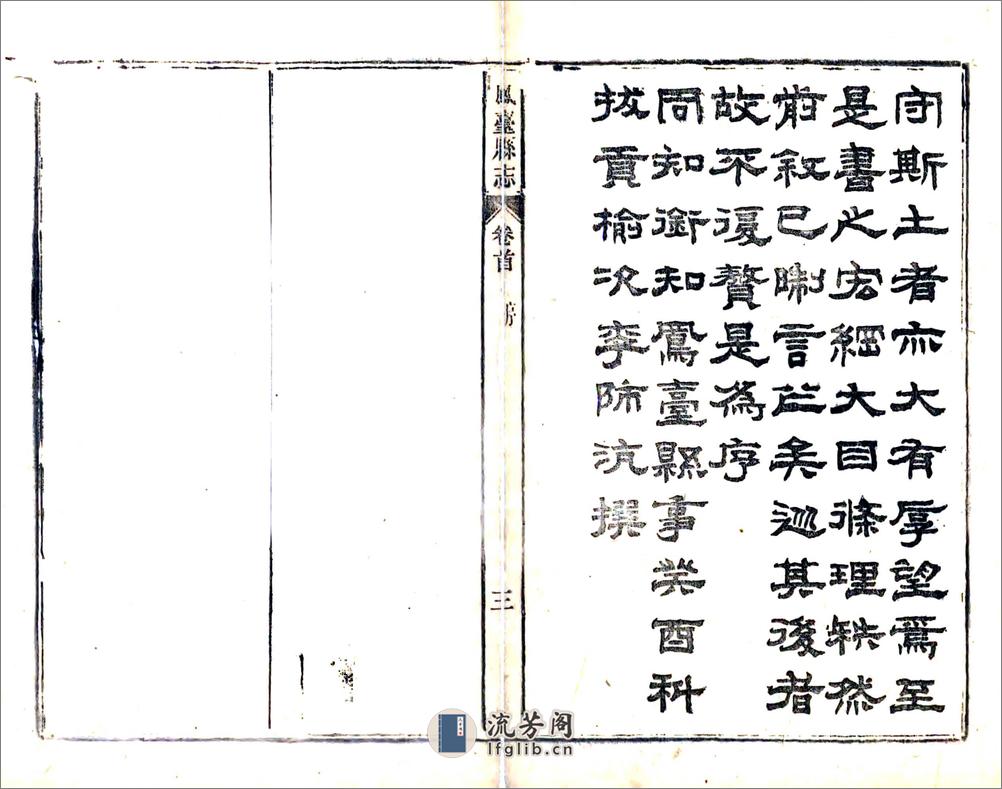 守斯土者亦大有厚望焉至
是書之宏綱大目條理秩然
前敘已晰言之矣其後者
故不復贅是為序
同知銜知鳳臺縣事癸酉科
拔貢榆次李師沆撰
鳳臺縣志 卷首 三
流芳阁
lfglib.cn